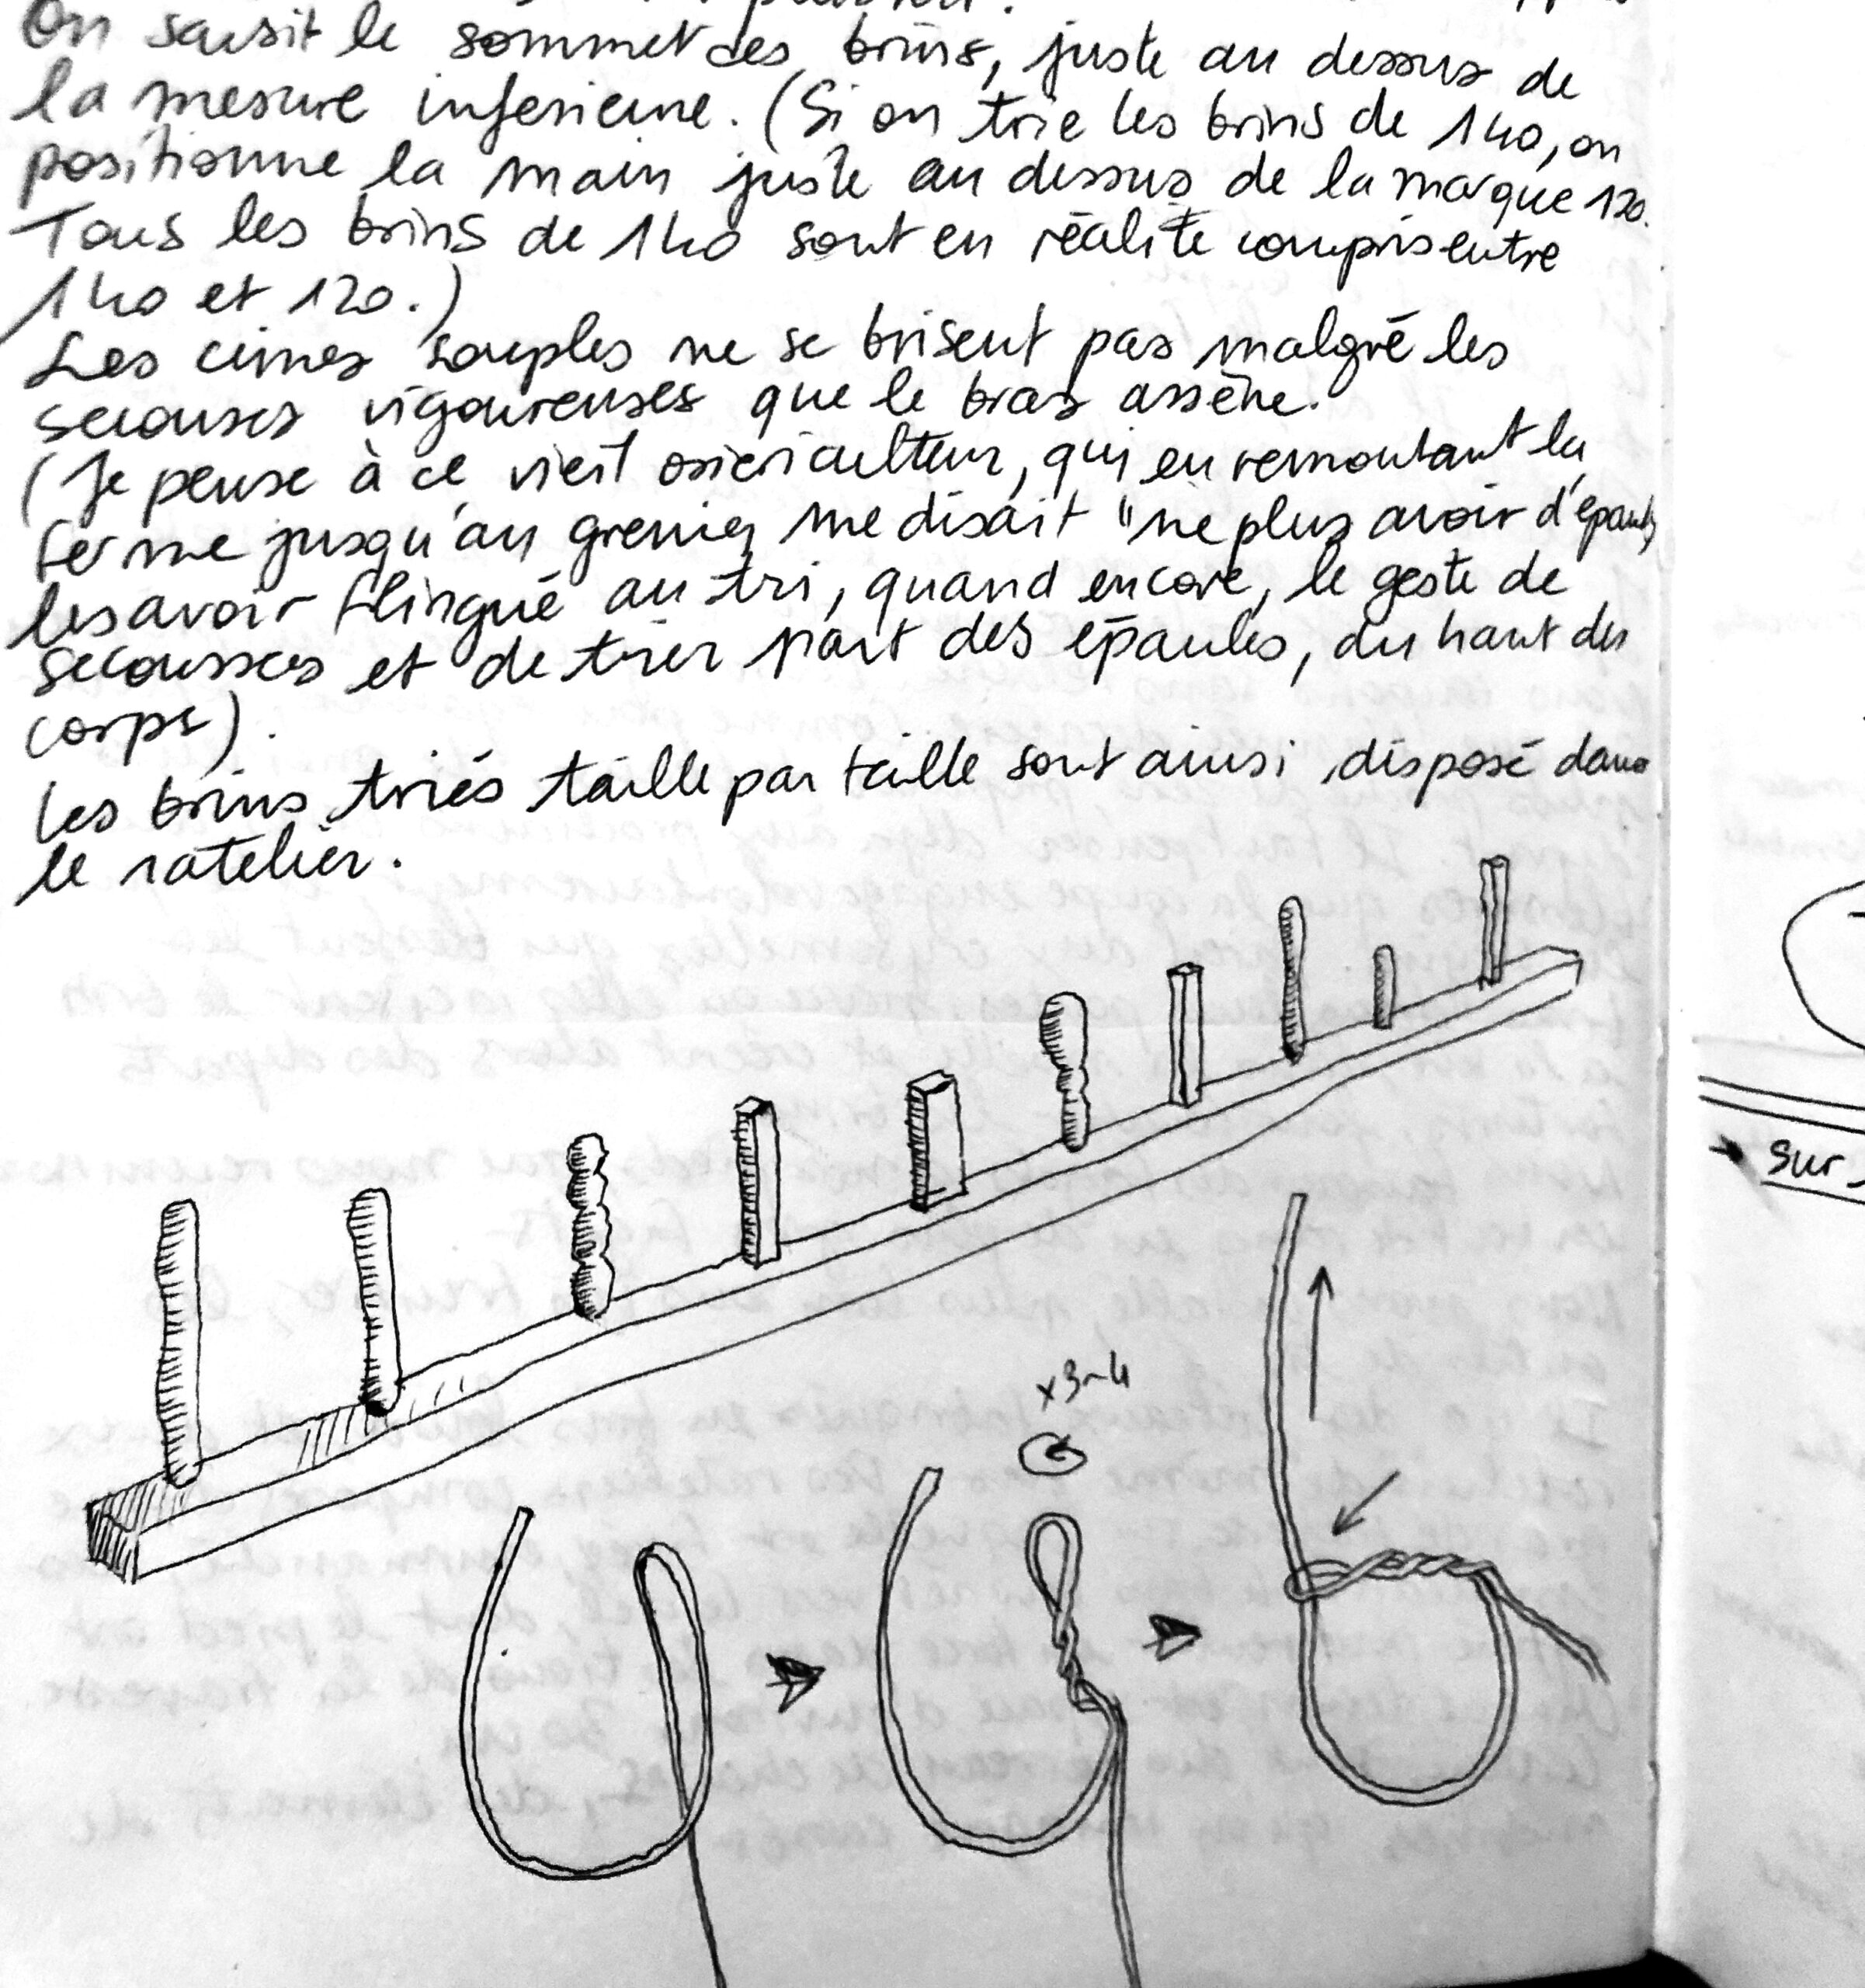 On saisit le sommet des brins, juste au dessus de
la mesure inferieure. (Si on trie les brins de 140, on
positionne la main juste au dessus de la marque 120.
Tous les brins de 140 sont en réalité compris entre
140 et 120.)
Les cimes souples ne se brisent pas malgré les
secousses vigoureuses que le bras assène.
(Je pense à ce vieil osiericulteur, qui en remontant la
ferme jusqu'au grenier me disait "ne plus avoir d'épaules
les avoir flingué au tri, quand encore, le geste de
secousses et de trier part des épaules, du haut du
corps).
Les brins triés taille par taille sont ainsi disposé dans
le ratelier.
x3~4
sur